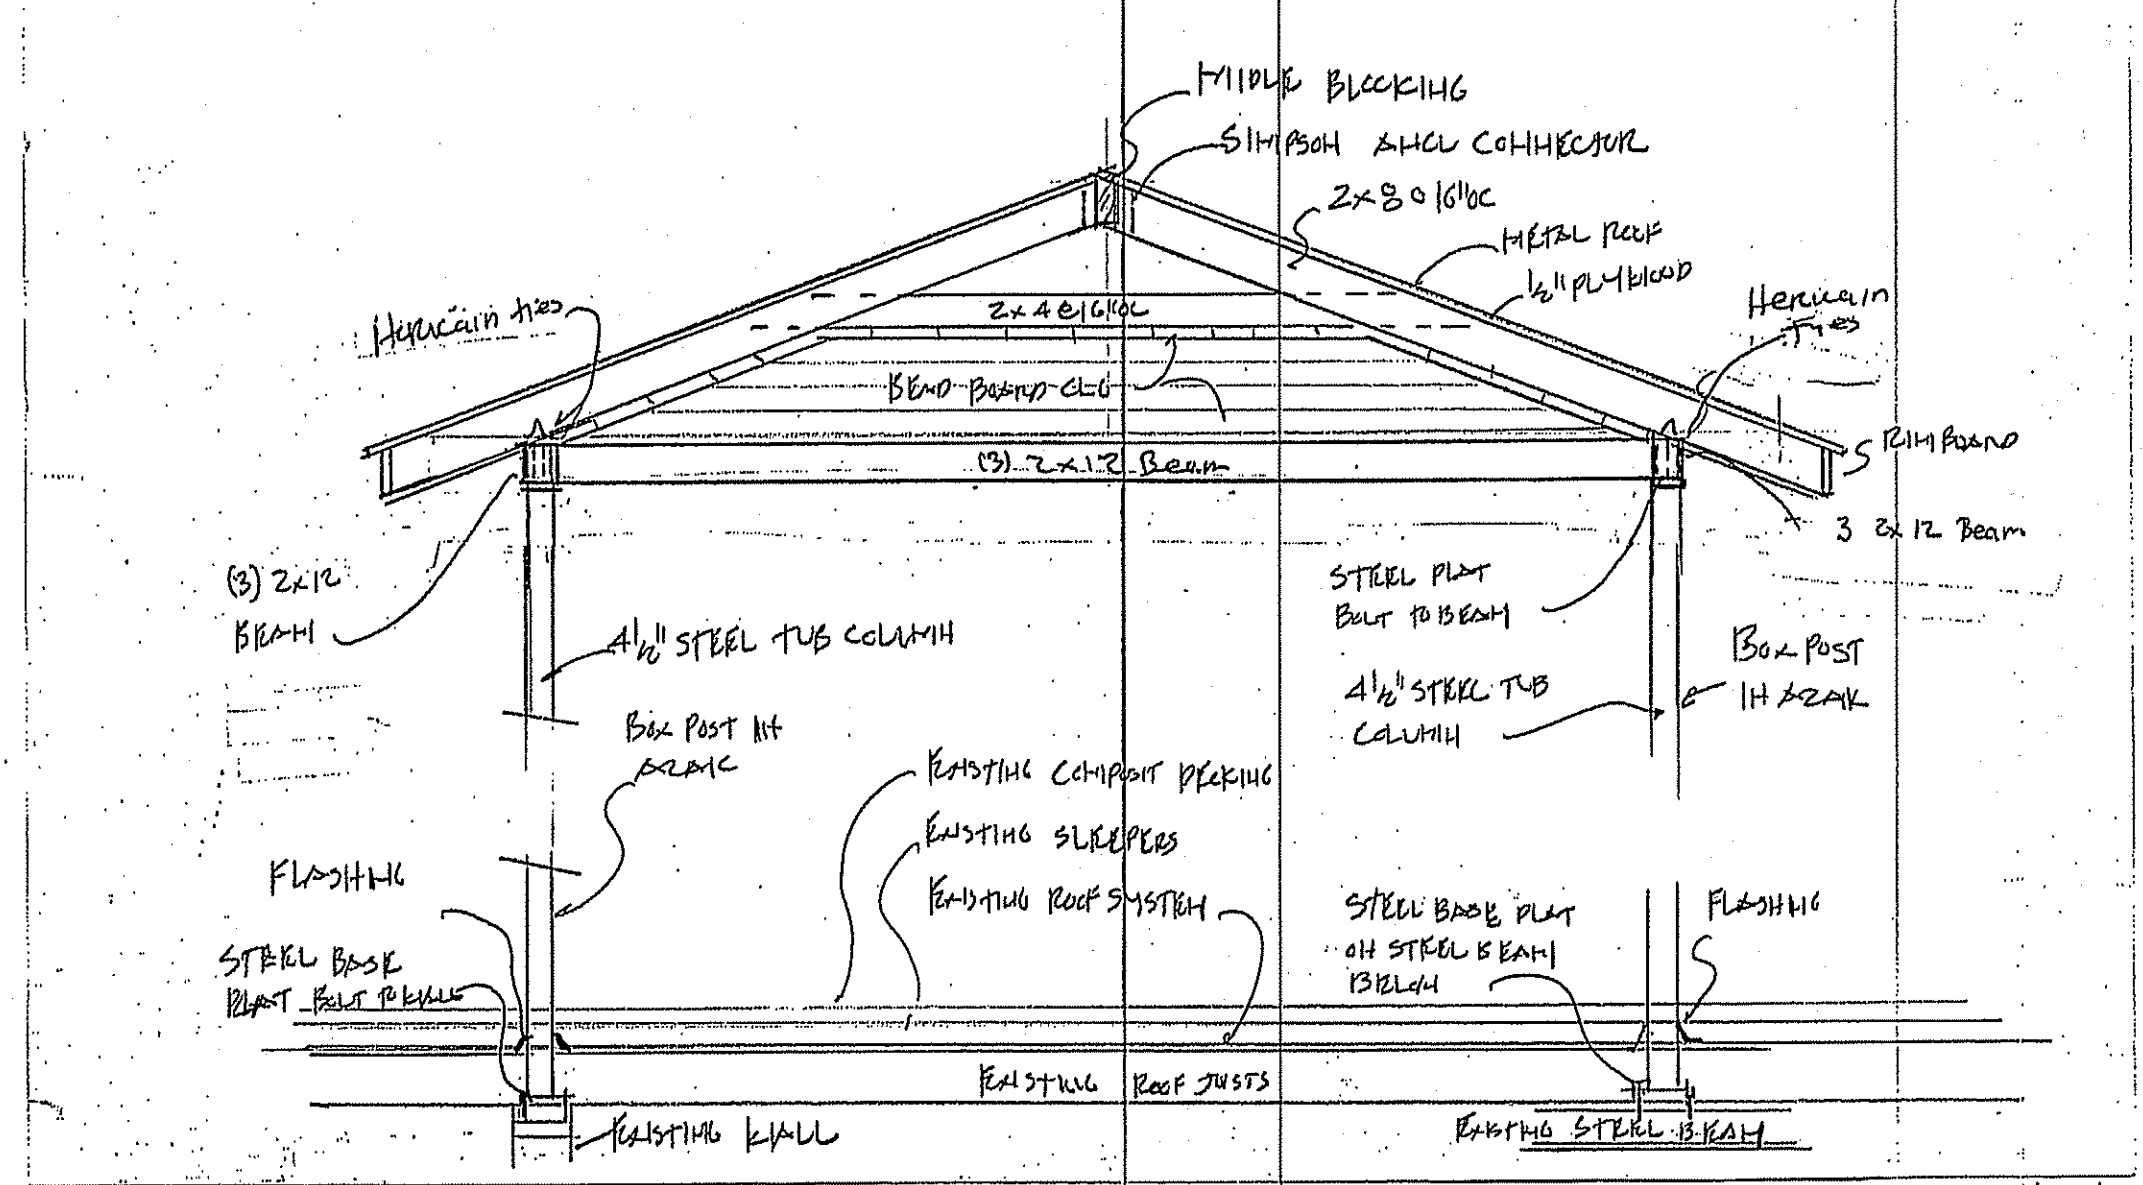 MIDLE BLOCKING
SIMPSON ANGL CONNECTOR
2x8 @ 16"OC
METAL ROOF
1/2" PLYWOOD
Hurucain ties
Herucain
Tyes
2x4 @ 16"OC
BEAD BOARD CLG
(3) 2x12 Beam
RIM BOARD
3 2x12 Beam
(3) 2x12
BEAM
STEEL PLAT
BOLT TO BEAM
4 1/2" STEEL TUB COLUMN
BOX POST
IN AZAK
4 1/2" STEEL TUB
COLUMN
BOX POST IN
AZAK
EXISTING COMPOSIT DECKING
EXISTING SLEEPERS
EXISTING ROOF SYSTEM
FLASHING
STEEL BASE PLAT
ON STEEL BEAM
BELOW
FLASHING
STEEL BASE
PLAT BOLT TO WALL
EXISTING ROOF JOISTS
EXISTING WALL
EXISTING STEEL BEAM